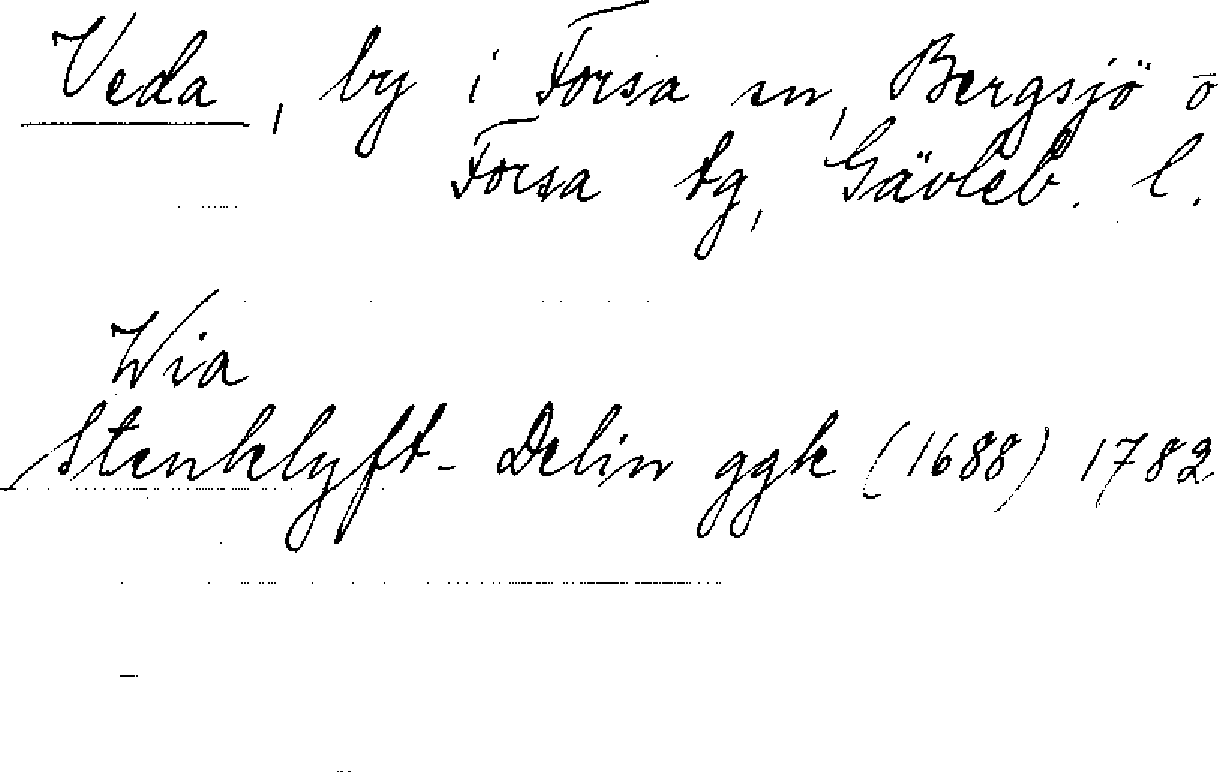 Veda, by i Forsa sn, Bergsjö o
Forsa tg, Gävleb. l.
Wia
Stenklyft- Delin ggk (1688) 1782